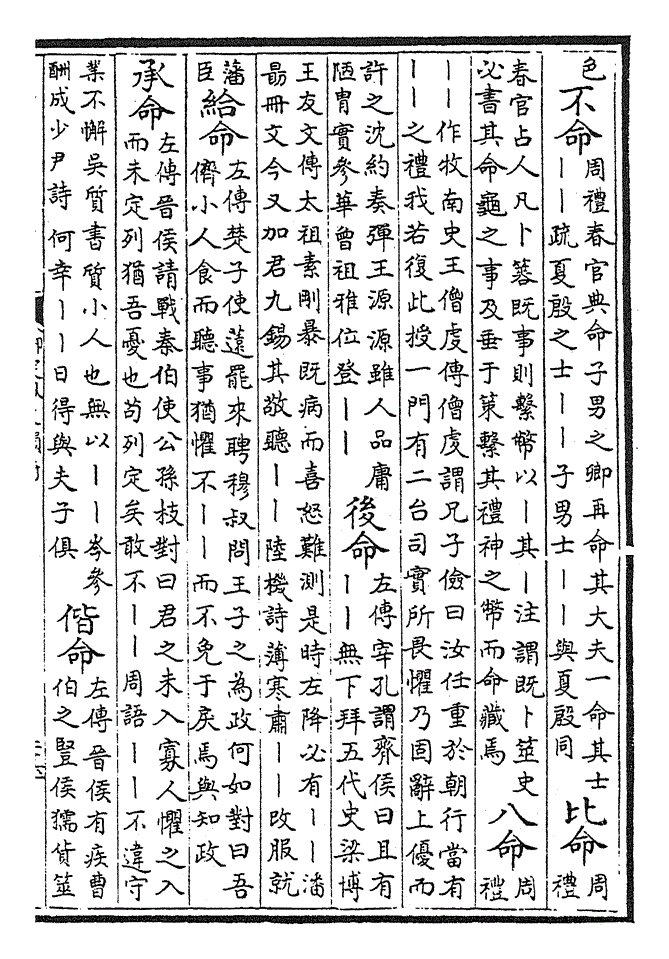 色不命周禮春官典命子男之卿再命其大夫一命其士
——疏夏殷之士——子男士——與夏殷同
比命周禮
春官占人凡卜簭既事則繫幣以—其—注謂既卜筮史
必書其命龜之事及垂于策繫其禮神之幣而命藏焉
八命周禮
——作牧南史王僧虔傳僧虔謂兄子儉曰汝任重於朝行當有
——之禮我若復此授一門有二台司實所畏懼乃固辭上優而
許之沈約奏彈王源源雖人品庸
陋胄實參華曾祖雅位登——
後命左傳宰孔謂齊侯曰且有
——無下拜五代史梁博
王友文傳太祖素剛暴既病而喜怒難測是時左降必有——潘
勗冊文今又加君九錫其敬聽——陸機詩薄寒肅——改服就
潘
臣
給命左傳楚子使薳罷來聘穆叔問王子之為政何如對曰吾
儕小人食而聽事猶懼不——而不免于戾焉與知政
承命左傳晉侯請戰秦伯使公孫枝對曰君之未入寡人懼之入
而未定列猶吾憂也茍列定矣敢不——周語——不違守
業不懈吳質書質小人也無以——岑參
酬成少尹詩何幸——日得與夫子俱
偕命左傳晉侯有疾曹
伯之豎侯獳貨筮